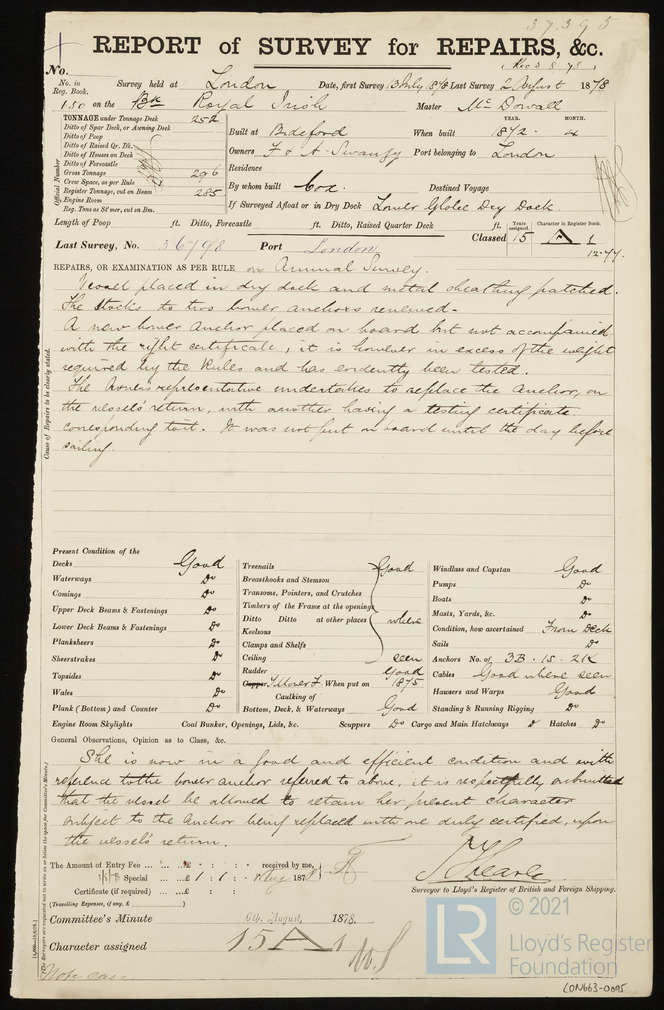 37395
REPORT of SURVEY for REPAIRS, &c.
No.
No. in Reg. Book. Survey held at London Date, first Survey 13 July 1878 Last Survey 2 August 1878
180 on the Bk Royal Irish Master Mc Dowall
TONNAGE under Tonnage Deck 252
Ditto of Spar Deck, or Awning Deck
Ditto of Poop
Ditto of Raised Qr. Dk.
Ditto of Houses on Deck
Ditto of Forecastle
Gross Tonnage 296
Crew Space, as per Rule
Register Tonnage, cut on Beam 285
Engine Room
Reg. Tons as St'mer, cut on Bm.
Official Number
YEAR. MONTH.
Built at Bideford When built 1872 - 4
Owners F & A Swanzy Port belonging to London
Residence
By whom built Cox. Destined Voyage
If Surveyed Afloat or in Dry Dock Lower Globe Dry Dock.
Length of Poop ft. Ditto, Forecastle ft. Ditto, Raised Quarter Deck ft.
Years assigned. Character in Register Book.
Last Survey, No. 36798 Port London Classed 15 A 1
12.77.
REPAIRS, OR EXAMINATION AS PER RULE or Annual Survey.
Vessel placed in dry dock and metal sheathing patched.
The stocks to two bower anchors renewed.-
A new bower Anchor placed on board but not accompanied
with the right certificate, it is however in excess of the weight
required by the Rules and has evidently been tested.
The Owners representative undertakes to replace the Anchor, on
the vessels' return, with another having a testing certificate
corresponding to it. It was not put on board until the day before
sailing.
Cause of Repairs to be clearly stated.
Present Condition of the
Decks Good
Waterways Do
Comings Do
Upper Deck Beams & Fastenings Do
Lower Deck Beams & Fastenings Do
Planksheers Do
Sheerstrakes Do
Topsides Do
Wales Do
Plank (Bottom) and Counter Do
Treenails Good
Breasthooks and Stemson
Transoms, Pointers, and Crutches
Timbers of the Frame at the openings
Ditto Ditto at other places where
Keelsons
Clamps and Shelfs
Ceiling seen
Rudder Good
Copper Y. M over F. When put on 1875
Caulking of
Bottom, Deck, & Waterways Good
Windlass and Capstan Good
Pumps Do
Boats Do
Masts, Yards, &c. Do
Condition, how ascertained From Deck
Sails Do
Anchors No. of 3B. 1S. 2K
Cables Good where seen
Hausers and Warps Good
Standing & Running Rigging Do
Engine Room Skylights Coal Bunker, Openings, Lids, &c. Scuppers Do Cargo and Main Hatchways & Hatches Do
General Observations, Opinion as to Class, &c.
She is now in a good and efficient condition and with
reference to the bower anchor referred to above, it is respectfully submitted
that the vessel be allowed to retain her present character
subject to the Anchor being replaced with one duly certified, upon
the vessels return.
The Amount of Entry Fee ... £ : : received by me,
Special ... £ 1 : 1 : Aug 1878
Certificate (if required) ... £ : :
(Travelling Expenses, if any, £ )
Surveyor to Lloyd's Register of British and Foreign Shipping.
Committee's Minute 6th August 1878.
Character assigned 15 A 1
Note case
© 2021
LR
Lloyd's Register
Foundation
LON663-0095